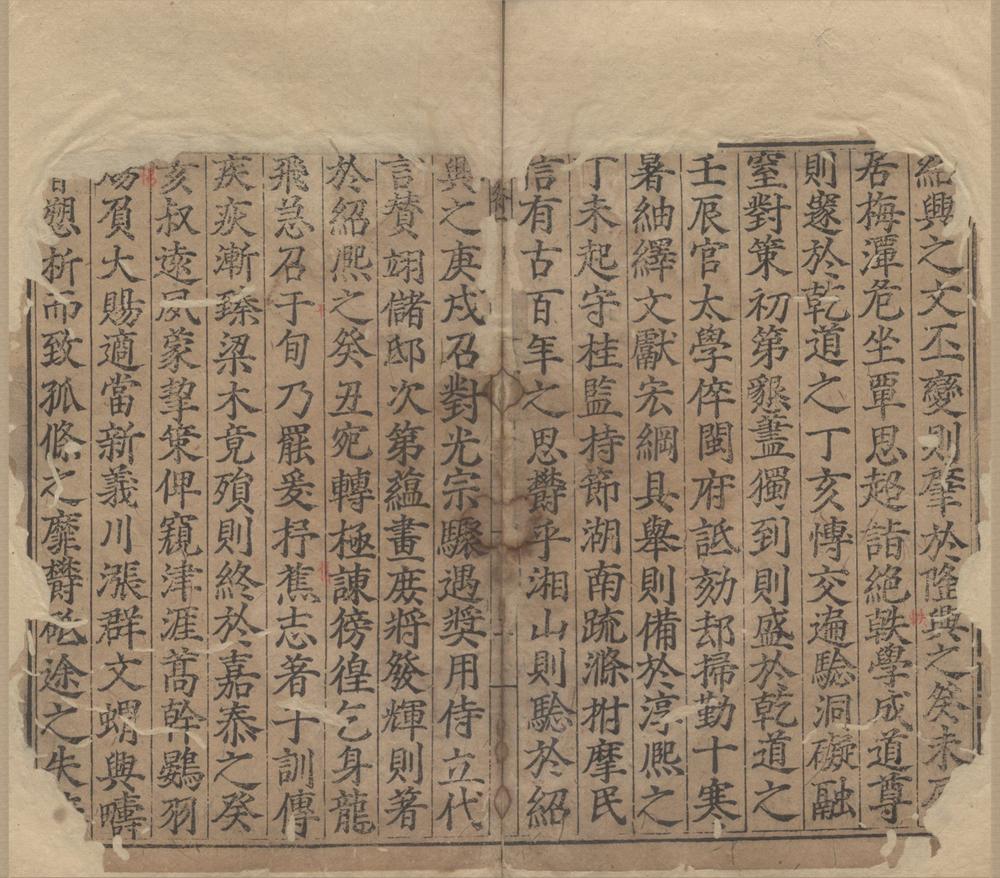 紹興之文丕變則肈於隆興之癸未
居梅潭危坐覃思超詣絶軼學成道尊
則邃於乾道之丁亥愽交遍驗洞礙融
窒對策初第懇盡獨到則盛於乾道之
壬辰官太學倅閩府詆劾却掃勤十寒
暑紬繹文獻宏綱具舉則備於淳熈之
丁未起守桂監持節湖南䟽滌拊摩民
信有古百年之思欝乎湘山則驗於紹
興之庚戌召對光宗驟遇奬用侍立代
言賛翊儲邸次第蘊畫庻將發輝則著
於紹熈之癸丑宛轉極諫徬徨乞身龍
飛急召于旬乃罷爰抒舊志著于訓傳
疾疢漸臻梁木竟殞則終於嘉㤗之癸
亥叔遠夙蒙挈策俾窺津涯蒿幹鷃羽
負大賜適當新義川漲群文蝟興疇
愬析而致孤絛之靡欝砣途之失